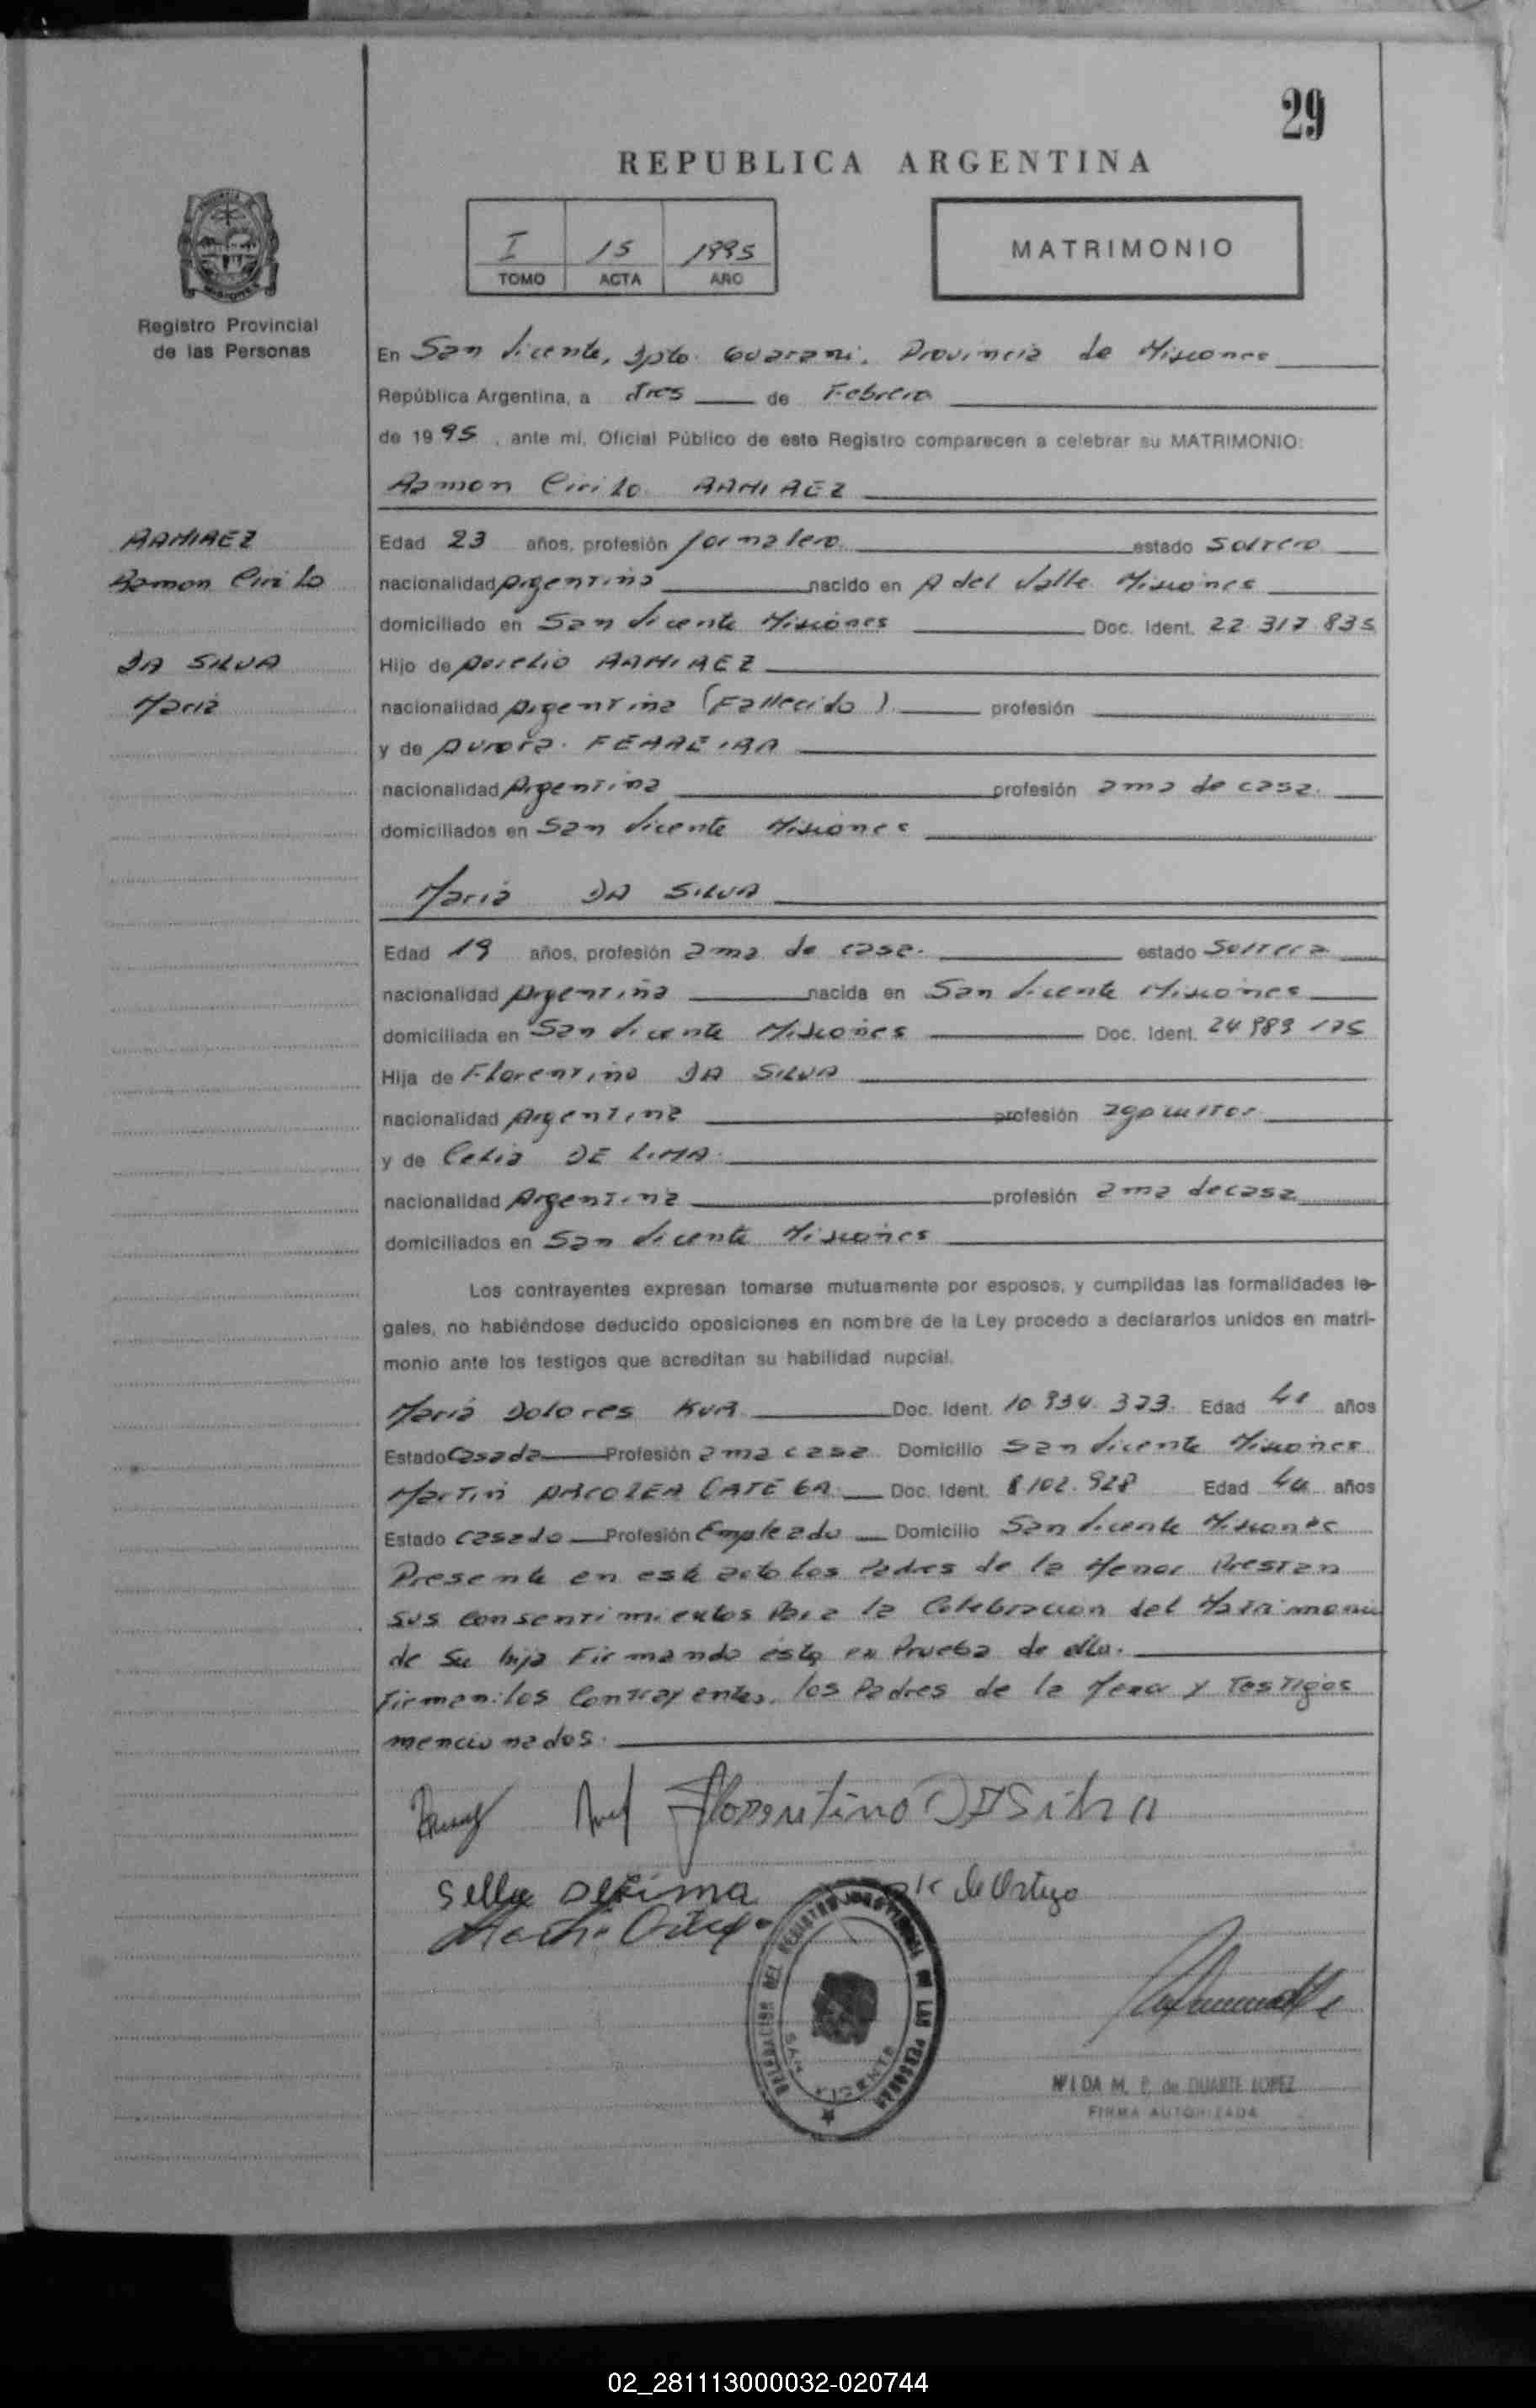 29
REPUBLICA ARGENTINA
I 15 1995
TOMO ACTA AÑO
MATRIMONIO
Registro Provincial
de las Personas
En San Vicente, Dpto. Guarani. Provincia de Misiones
República Argentina, a tres de Febrero
de 1995, ante mí, Oficial Público de este Registro comparecen a celebrar su MATRIMONIO:
Ramon Cirilo RAMIREZ
RAMIREZ
Ramon Cirilo
DA SILVA
Maria
Edad 23 años, profesión jornalero estado Soltero
nacionalidad Argentina nacido en A del Valle Misiones
domiciliado en San Vicente Misiones Doc. Ident. 22.317.835
Hijo de Aurelio RAMIREZ
nacionalidad Argentina (Fallecido) profesión
y de Aurora FERREIRA
nacionalidad Argentina profesión ama de casa.
domiciliados en San Vicente Misiones
Maria DA SILVA
Edad 19 años, profesión ama de casa. estado Soltera
nacionalidad Argentina nacida en San Vicente Misiones
domiciliada en San Vicente Misiones Doc. Ident. 24.989.175
Hija de Florentino DA SILVA
nacionalidad Argentina profesión agricultor
y de Celia DE LIMA
nacionalidad Argentina profesión ama de casa
domiciliados en San Vicente Misiones
Los contrayentes expresan tomarse mutuamente por esposos, y cumplidas las formalidades le-
gales, no habiéndose deducido oposiciones en nombre de la Ley procedo a declararlos unidos en matri-
monio ante los testigos que acreditan su habilidad nupcial.
Maria Dolores Doc. Ident. 10.934.373. Edad años
Estado Casada Profesión ama casa Domicilio San Vicente Misiones
Martin Doc. Ident. 8.102.928 Edad años
Estado casado Profesión Empleado Domicilio San Vicente Misiones
Presente en este acto los Padres de la Menor Prestan
sus consentimientos Para la Celebracion del Matrimonio
de su hija Firmando esta en Prueba de ello.
Firman: los Contrayentes. los Padres de la Menor y Testigos
mencionados.
Florentino DA Silva
de Ortega
DELEGACION DEL REGISTRO PROVINCIAL DE LAS PERSONAS
SAN VICENTE
NILDA M. P. de DUARTE LOPEZ
FIRMA AUTORIZADA
02_281113000032-020744